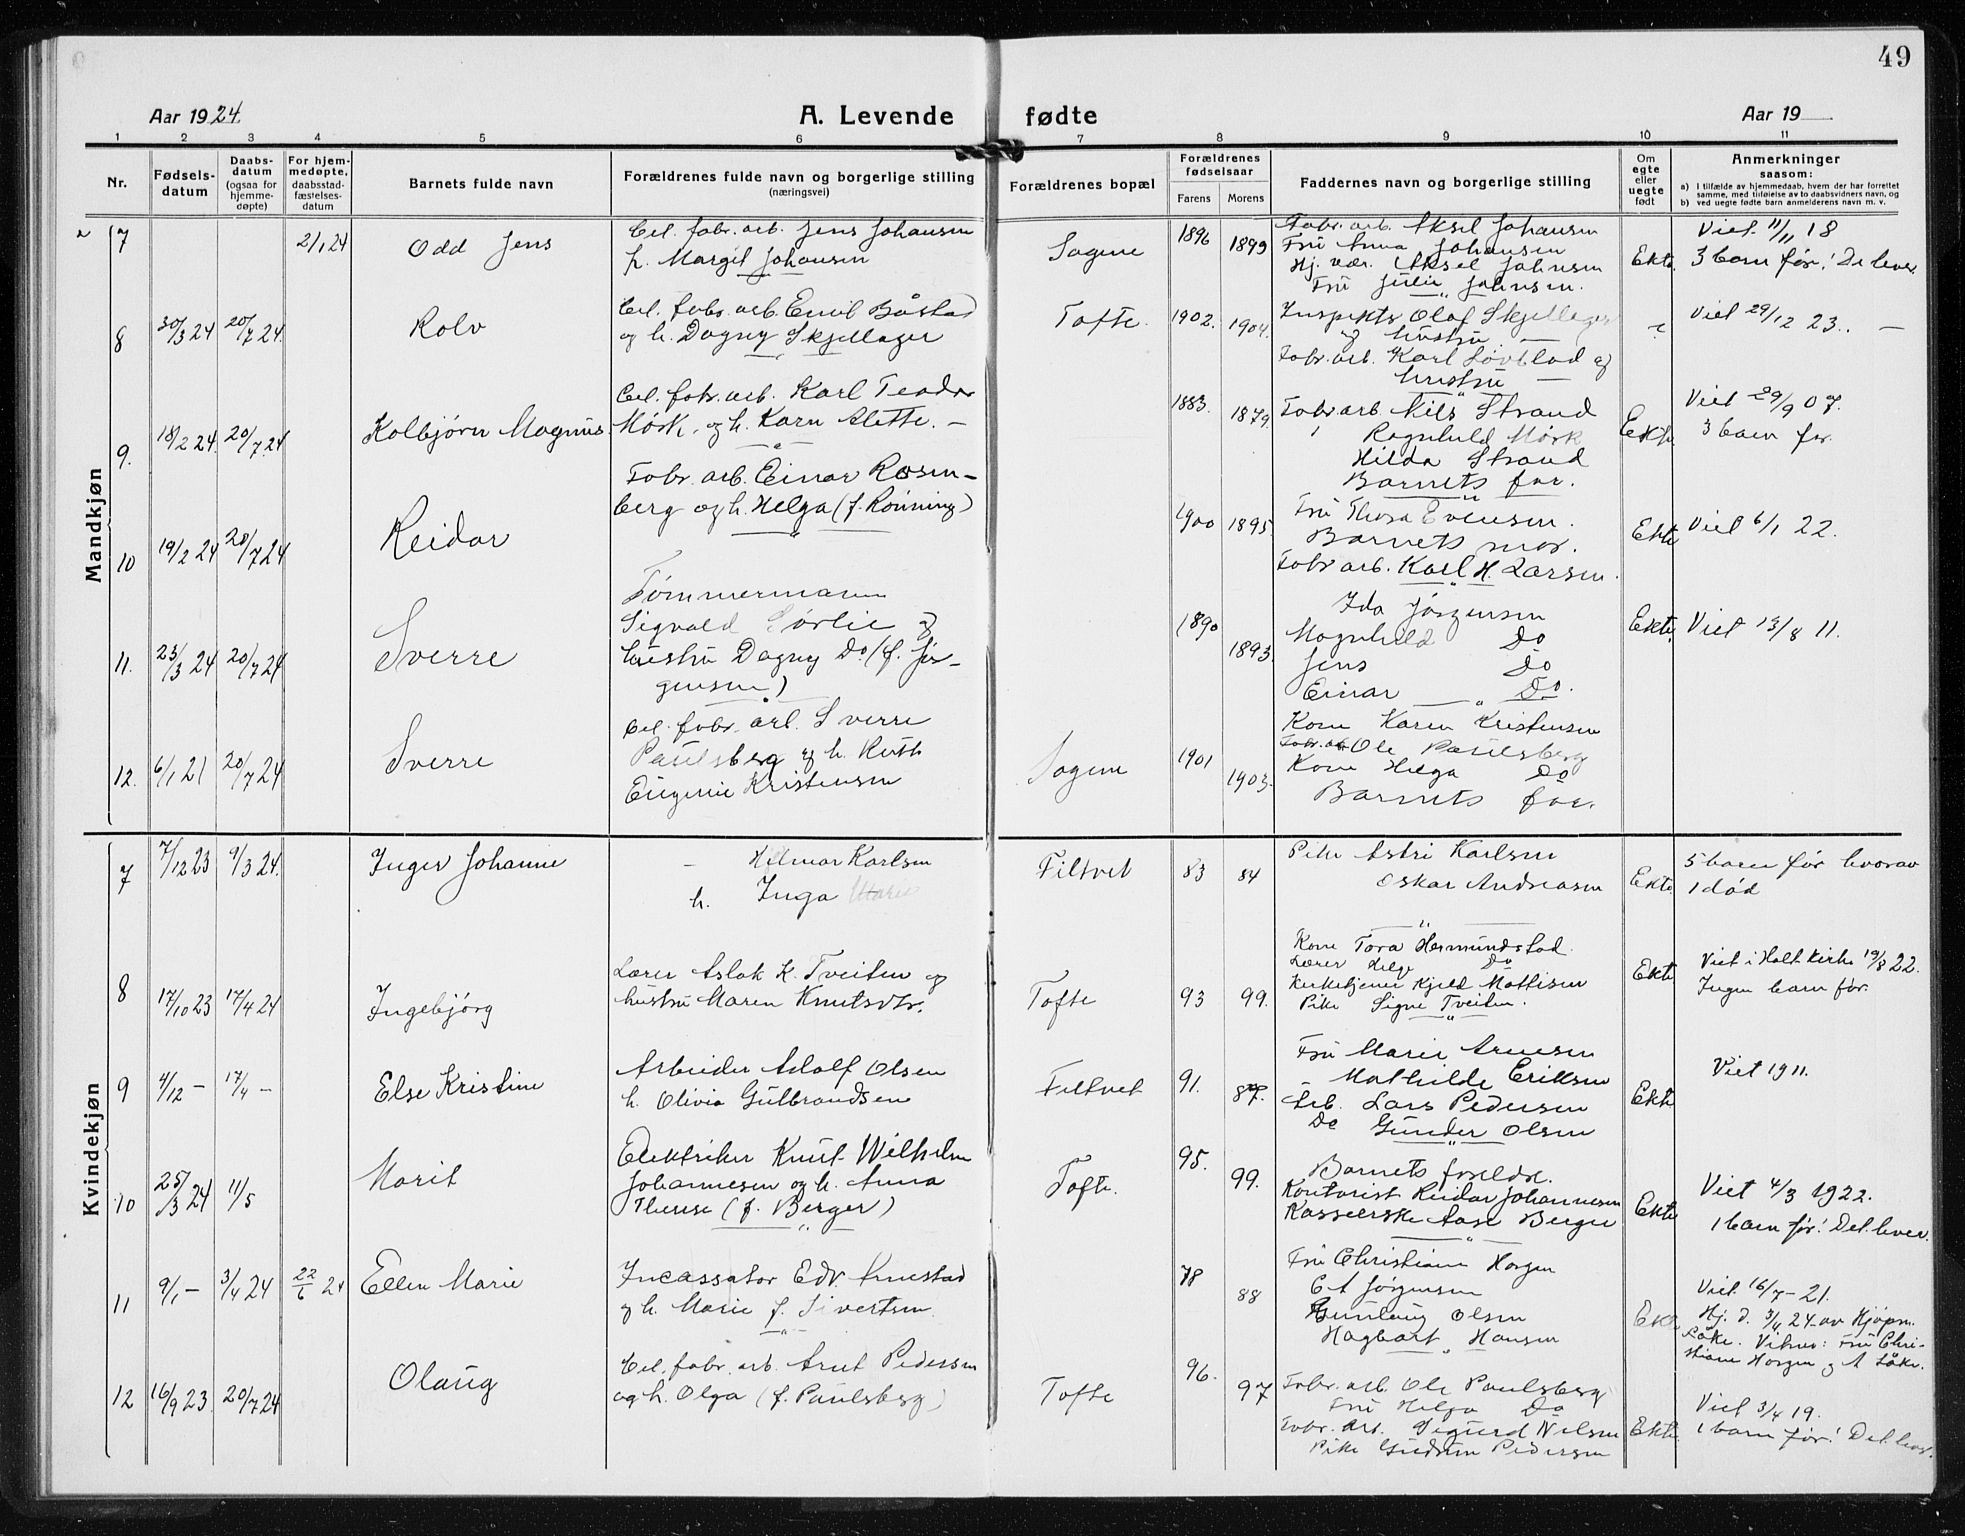 49
Aar 1924.
A. Levende fødte
Aar 19
1 2 3 4 5 6 7 8 9 10 11
Nr.
Fødsels-
datum
Daabs-
datum
(ogsaa for
hjemme-
døpte)
For hjem-
medøpte,
daabsstad-
fæstelses-
datum
Barnets fulde navn
Forældrenes fulde navn og borgerlige stilling
(næringsvei)
Forældrenes bopæl
Forældrenes
fødselsaar
Farens Morens
Faddernes navn og borgerlige stilling
Om
egte
eller
uegte
født
Anmerkninger
saasom:
a) I tilfælde av hjemmedaab, hvem der har forrettet
samme, med tilføielse av to daabsvidners navn, og
b) ved uegte fødte barn anmelderens navn m. v.
Mandkjøn
7 2/1 24 Odd Jens
Cel. fabr. arb. Jens Johansen
h. Margit Johansen
Sagene 1896 1899
Fabr. arb. Aksel Johansen
Fru Anna Johansen
Hj. vær. Aksel Johnsen
Fru Julie Johnsen.
Ekte
Viet 11/11 18
3 barn før! De lever
8 30/3 24 20/7 24. Rolv
Cel. fabr. arb. Emil Båstad
og h. Dagny Skjellager
Tofte. 1902. 1904.
Inspektø Olaf Skjellager
og hustru —
Fabr. arb. Karl Løvblad og
hustru —
Viet 29/12 23. —
9. 18/2 24. 20/7 24 Kolbjørn Magnus
Cel. fabr. arb. Karl Teodor
Mørk, og h. Karn Alette. —
1883. 1879.
Fabr arb Nils Strand
Ragnhild Mørk
Hilda Strand
Barnets far.
Ekte
Viet 29/9 07.
3 barn før.
10 19/2 24 20/7 24 Reidar
Fabr. arb. Einar Rosen-
berg og h. Helga (f. Rønning)
1900 1895
Fru Thora Evensen.
Barnets mor.
Fabr arb. Karl H. Larsen.
Ekte
Viet 6/1 22.
11. 23/3 24 20/7 24 Sverre
Tømmermann
Sigvald Sørlie og
hustru Dagny Do. (f. Jør-
gensen)
1890 1893.
Ida Jørgensen
Magnhild Do
Jens Do
Einar Do.
Ekte.
Viet 13/8 11.
12. 6/1 21 20/7 24 Sverre
Cel. fabr. arb. Sverre
Paulsberg og h. Ruth
Eugenie Kristensen
Sagene 1901 1903.
Kone Karen Kristensen
Fabr. arb Ole Paulsberg
Kone Helga Do
Barnets far.
Kvindekjøn
7 7/12 23 9/3 24. Inger Johanne
— Hilmar Karlsen
h. Inga Marie
Filtvet 83 84
Pike Astri Karlsen
Oskar Andreasen
Ekte
5 barn før hvorav
1 død
8 17/10 23 17/4 24 Ingebjørg
Lærer Aslak K. Tveiten og
hustru Maren Knutsdtr.
Tofte 93 99.
Kone Tora Hermundstad.
Lærer Helge Do
Kirketjener Kjeld Mathisen
Pike Signe Tveiten.
Ekte
Viet i Holt kirke 19/8 22.
Ingen barn før.
9 4/12 — 17/4 — Else Kristine
Arbeider Adolf Olsen
h. Olivia Gulbrandsen
Filtvet 91. 87.
Fru Marie Arnesen
Mathilde Eriksen
Arb. Lars Pedersen
Do Gunder Olsen
Ekte
Viet 1911.
10 25/3 24 11/5 Marit
Elektriker Knut Wilhelm
Johannesen og h. Anna
Therese (f. Berger)
Tofte. 95. 99.
Barnets foreldre.
Kontorist Reidar Johannesen
Kasserske Aase Berger
Ekte
Viet 4/3 1922.
1 barn før! Det lever.
11 9/1 — 3/4 24 22/6 24 Ellen Marie
Incassator Edv. Arnestad
og h. Marie f. Sivertsen.
78 88
Fru Christiane Horgen
Jørgensen
Gunlaug Olsen
Hagbart Hansen
Ekte
Viet 16/7 — 21.
Hj. d. 3/4 24. av Hjøpm.
Låke. Vitner: Fru Chri-
stiane Horgen og A Låke.
12 16/9 23. 20/7 24 Olaug
Cel. fabr. arb. Arnt Pedersen
og h. Olga (f. Paulsberg)
Tofte 96. 97
Fabr. arb. Ole Paulsberg
Fru Helga Do
Fabr. arb. Sigurd Nilsen
Pike Gudrun Pedersen
Ekte.
Viet 3/4 19.
1 barn før! Det lever.